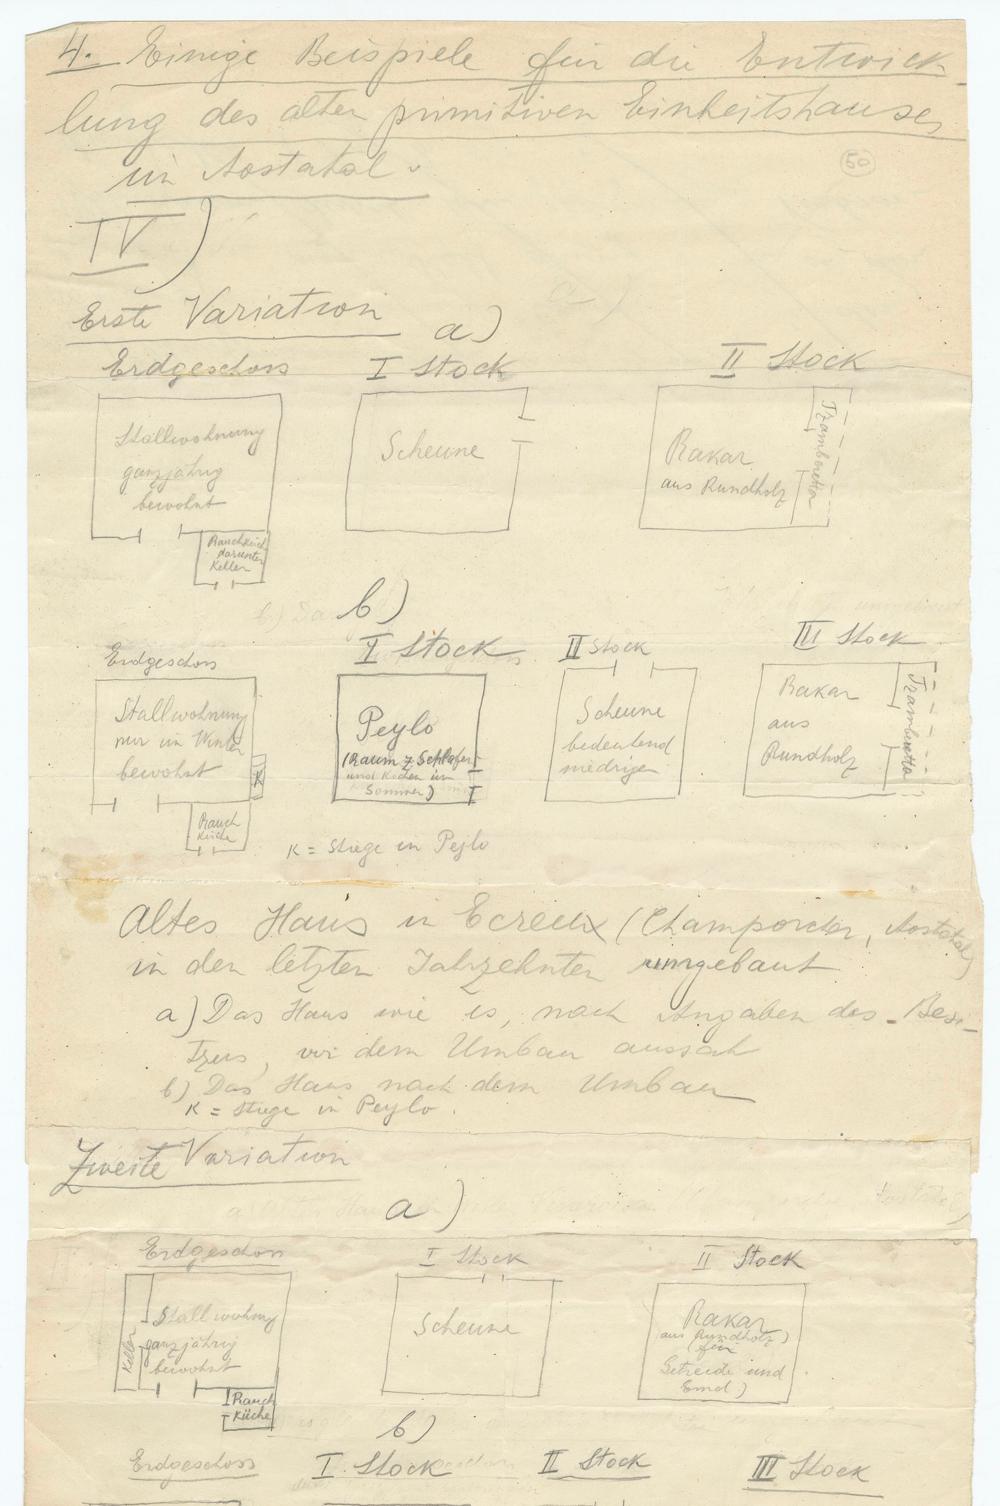 4. Einige Beispiele für die Entwick-
lung des alten primitiven Einheitshauses
im Aostatal.
50
IV)
Erste Variation
a)
Erdgeschoss
I Stock
II Stock
Stallwohnung
ganzjährig
bewohnt
Rauchküche
darunter
Keller
Scheune
Rakar
aus Rundholz
Trambenetta
b)
Erdgeschoss
I Stock
II Stock
III Stock
Stallwohnung
nur im Winter
bewohnt
K
Rauch
küche
Peylo
(Raum z Schlafen
und Kochen im
Sommer)
Scheune
bedeutend
niedriger
Rakar
aus
Rundholz
Trambenetta
K = Stiege in Peylo
Altes Haus in Ecreux (Champorcher, Aostatal)
in den letzten Jahrzehnten umgebaut
a) Das Haus wie es, nach Angaben des Besi-
tzers, vor dem Umbau aussah
b) Das Haus nach dem Umbau
K = Stiege in Peylo.
Zweite Variation
a)
Erdgeschoss
I Stock
II Stock
Keller
Stallwohnung
ganzjährig
bewohnt
Rauch
Küche
Scheune
Rakar
aus (Rundholz)
(für
Getreide und
Emd)
b)
Erdgeschoss
I. Stock
II Stock
III Stock